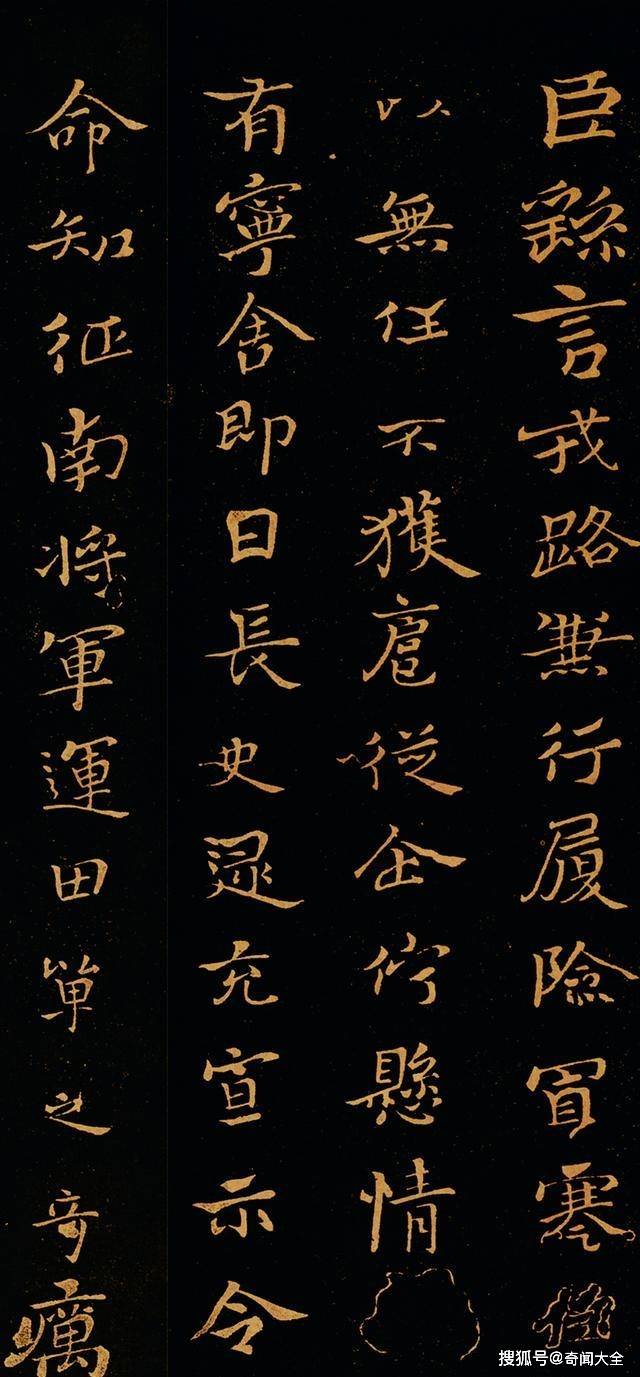 臣繇言戎路兼行履險冒寒
以無任不獲扈從企佇懸情
有寧舍即日長史逯充宣示令
命知征南將軍運田單之奇厲
搜狐号@奇闻大全